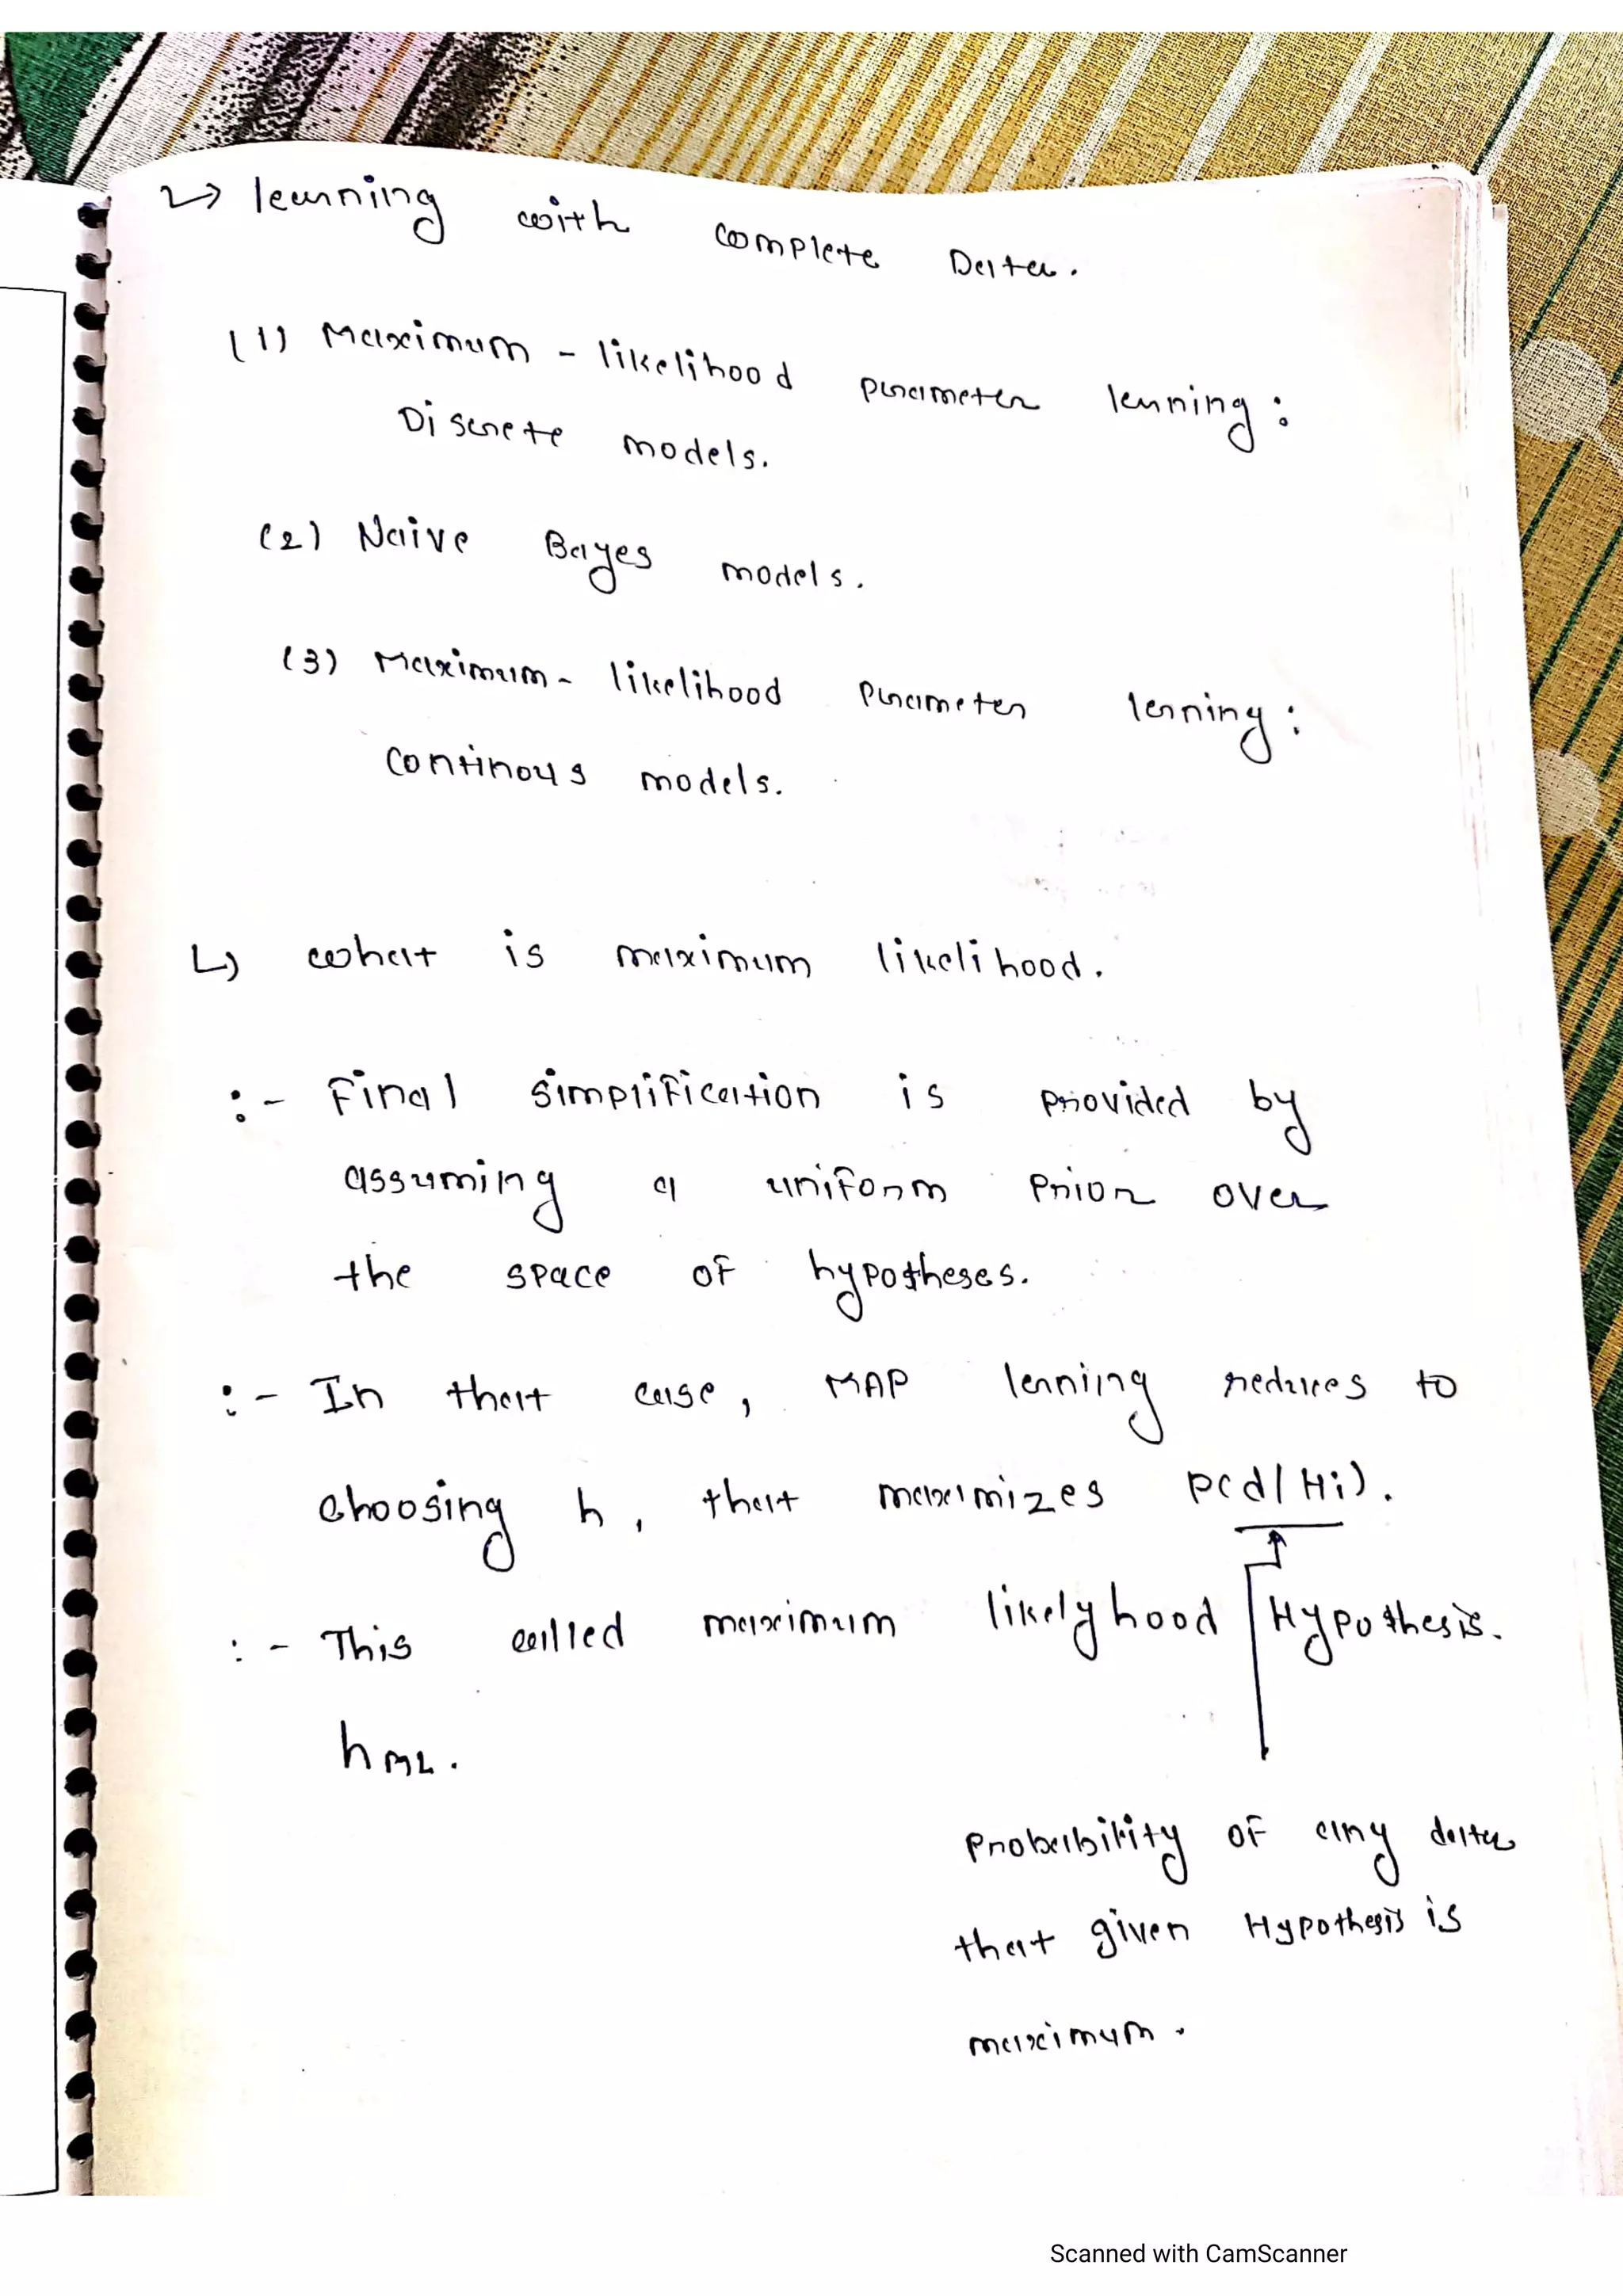 ↳ learning with complete Data.
(1) Maximum - likelihood parameter lerning :
Discrete models.
(2) Naive Bayes models.
(3) Maximum - likelihood Parameter lerning :
Continous models.
↳ what is maximum likelihood.
:- Final simplification is provided by
assuming a uniform Prior over
the space of hypotheses.
:- In that case, MAP lerning reduces to
choosing h, that maximizes P(d/Hi).
:- This called maximum likelyhood Hypothesis.
hML.
Probability of any data
that given Hypothesis is
maximum.
Scanned with CamScanner